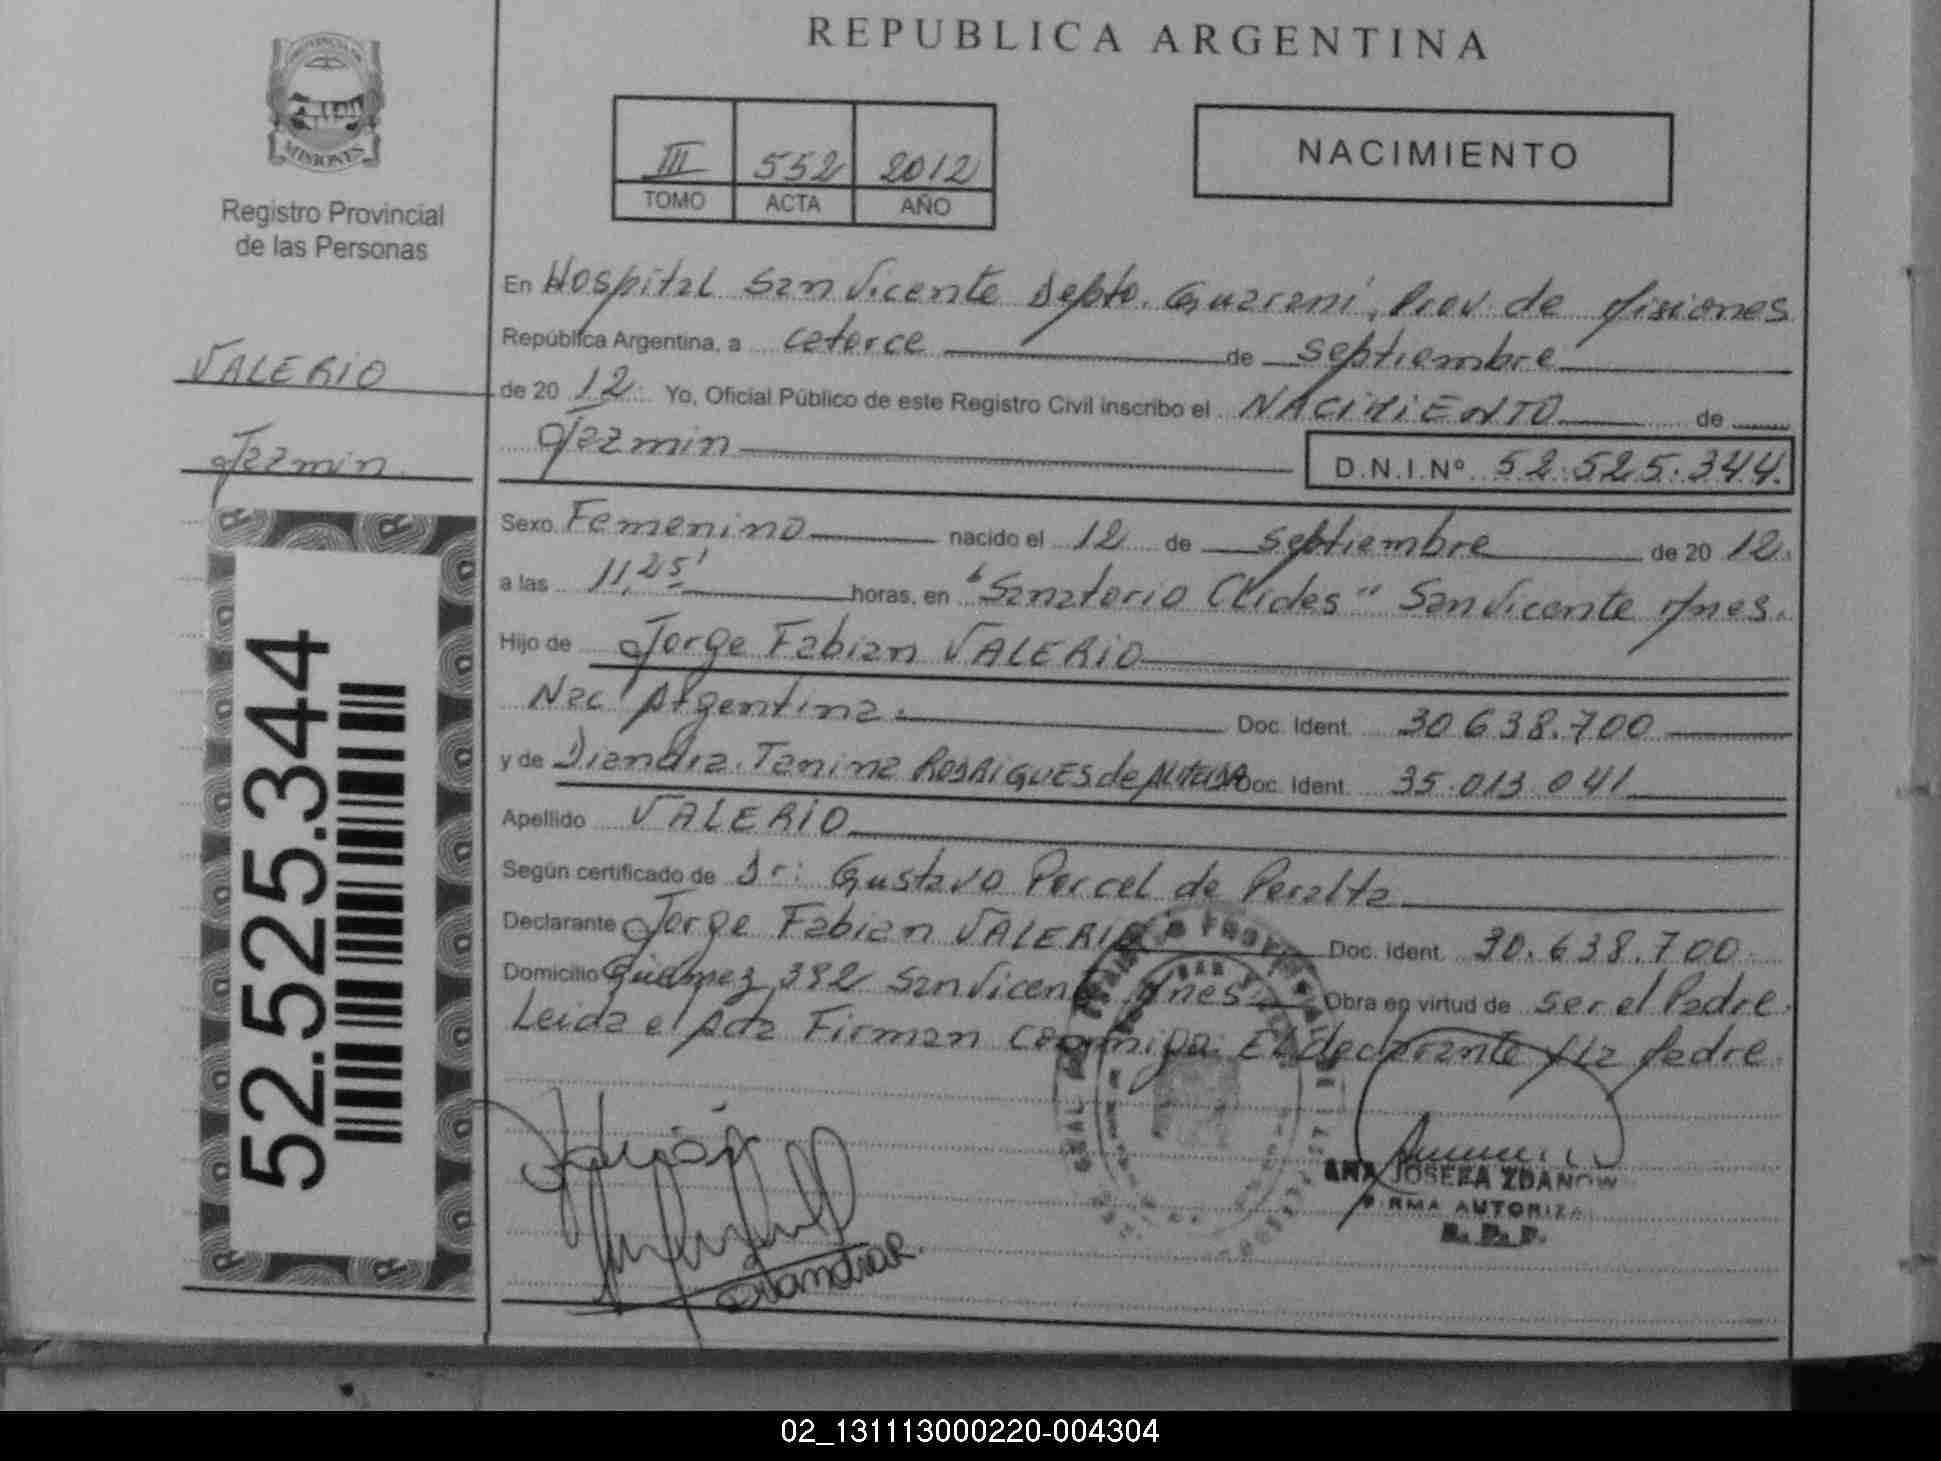 REPUBLICA ARGENTINA
PROVINCIA DE
MISIONES
Registro Provincial
de las Personas
III 552 2012
TOMO ACTA AÑO
NACIMIENTO
VALERIO
Jazmin
52.525.344
En Hospital San Vicente Depto. Guarani, Prov. de Misiones
República Argentina, a catorce de septiembre
de 20 12. Yo, Oficial Público de este Registro Civil inscribo el NACIMIENTO de
Jazmin D.N.I.Nº 52.525.344.
Sexo Femenino nacido el 12 de septiembre de 20 12.
a las 11,25' horas, en "Sanatorio" San Vicente Mnes.
Hijo de Jorge Fabian VALERIO
Nac Argentina. Doc. Ident. 30.638.700
y de Tanina RODRIGUES de Doc. Ident. 35.013.041
Apellido VALERIO
Según certificado de Dr: Gustavo Porcel de Peralta
Declarante Jorge Fabian VALERIO Doc. Ident. 30.638.700
Domicilio Güemez 392 San Vicente Mnes Obra en virtud de ser el Padre.
Leida el Acta Firman Conmigo El declarante y la Madre.
ANA JOSEFA ZDANOW
FIRMA AUTORIZA
R. P. P.
02_131113000220-004304